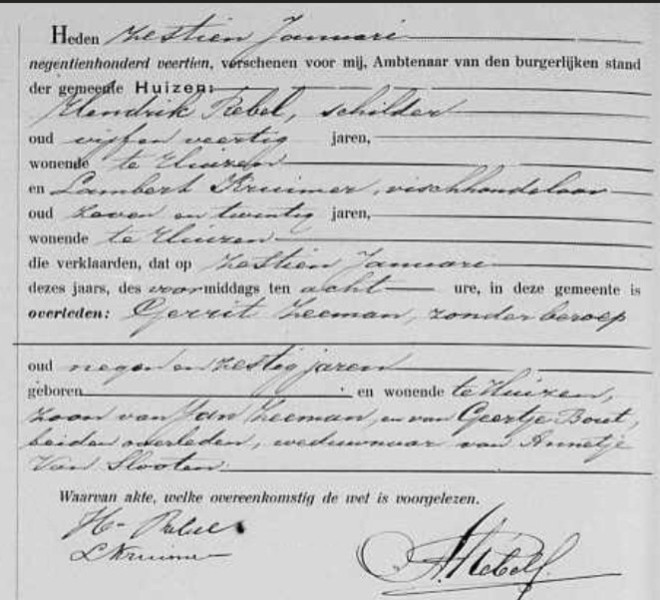 Heden zestien Januari
negentienhonderd veertien, verschenen voor mij, Ambtenaar van den burgerlijken stand
der gemeente Huizen:
Hendrik Rebel, schilder
oud vijf en veertig jaren,
wonende te Huizen
en Lambert Kruimer, vischhandelaar
oud zeven en twintig jaren,
wonende te Huizen
die verklaarden, dat op zestien Januari
dezes jaars, des voormiddags ten acht ure, in deze gemeente is
overleden: Gerrit Zeeman, zonder beroep
oud negen en zestig jaren
geboren en wonende te Huizen,
zoon van Jan Zeeman, en van Geertje Bout,
beiden overleden, weduwnaar van Annetje
Van Slooten.
Waarvan akte, welke overeenkomstig de wet is voorgelezen.
H. Rebel
L Kruimer